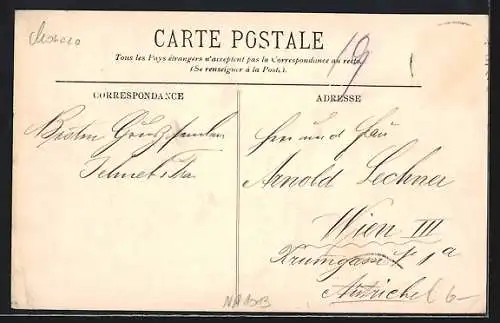 Monaco
CARTE POSTALE
19
Tous les Pays étrangers n'acceptent pas la Correspondance au recto.
(Se renseigner à la Poste).
CORRESPONDANCE
Besten
ADRESSE
Herr und Frau
Arnold Lechner
Wien III
Krumgasse 1a
Autriche
6-